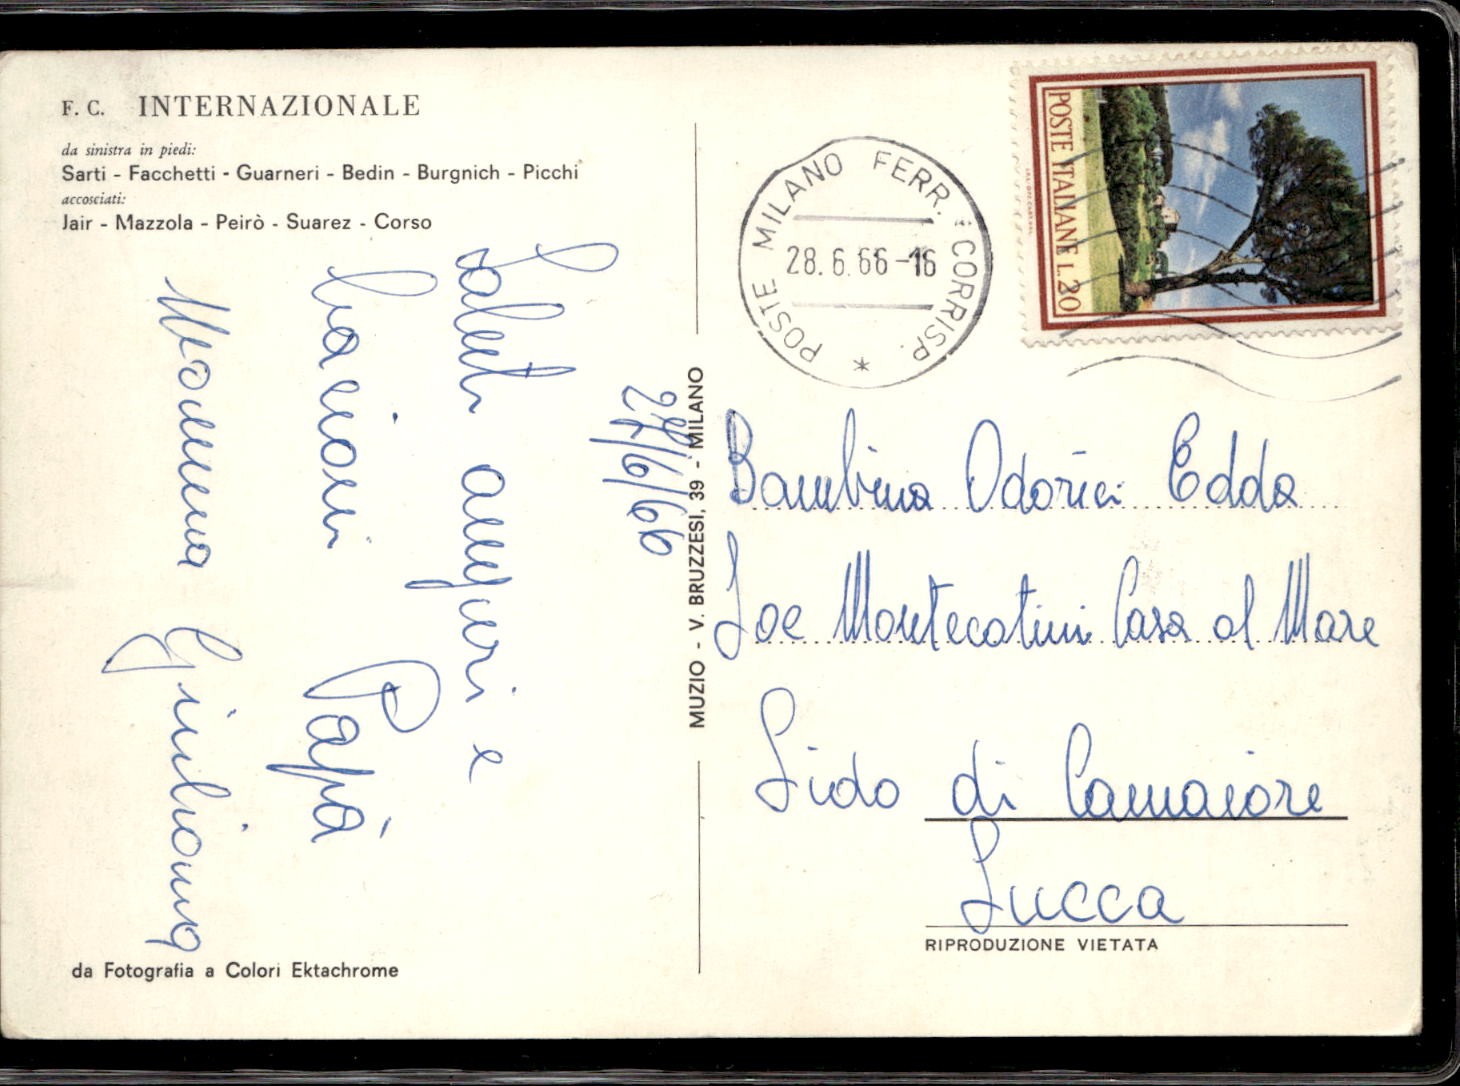 F. C. INTERNAZIONALE
da sinistra in piedi:
Sarti - Facchetti - Guarneri - Bedin - Burgnich - Picchi
accosciati:
Jair - Mazzola - Peirò - Suarez - Corso
28/6/66
Saluti auguri e
bacioni Papà
Mamma Giuliana
da Fotografia a Colori Ektachrome
MUZIO - V. BRUZZESI, 39 - MILANO
POSTE MILANO FERR. CORRISP.
28.6.66-16
*
POSTE ITALIANE L.20
Bambina Odorici Edda
Soc Montecatini Casa al Mare
Lido di Camaiore
Lucca
RIPRODUZIONE VIETATA